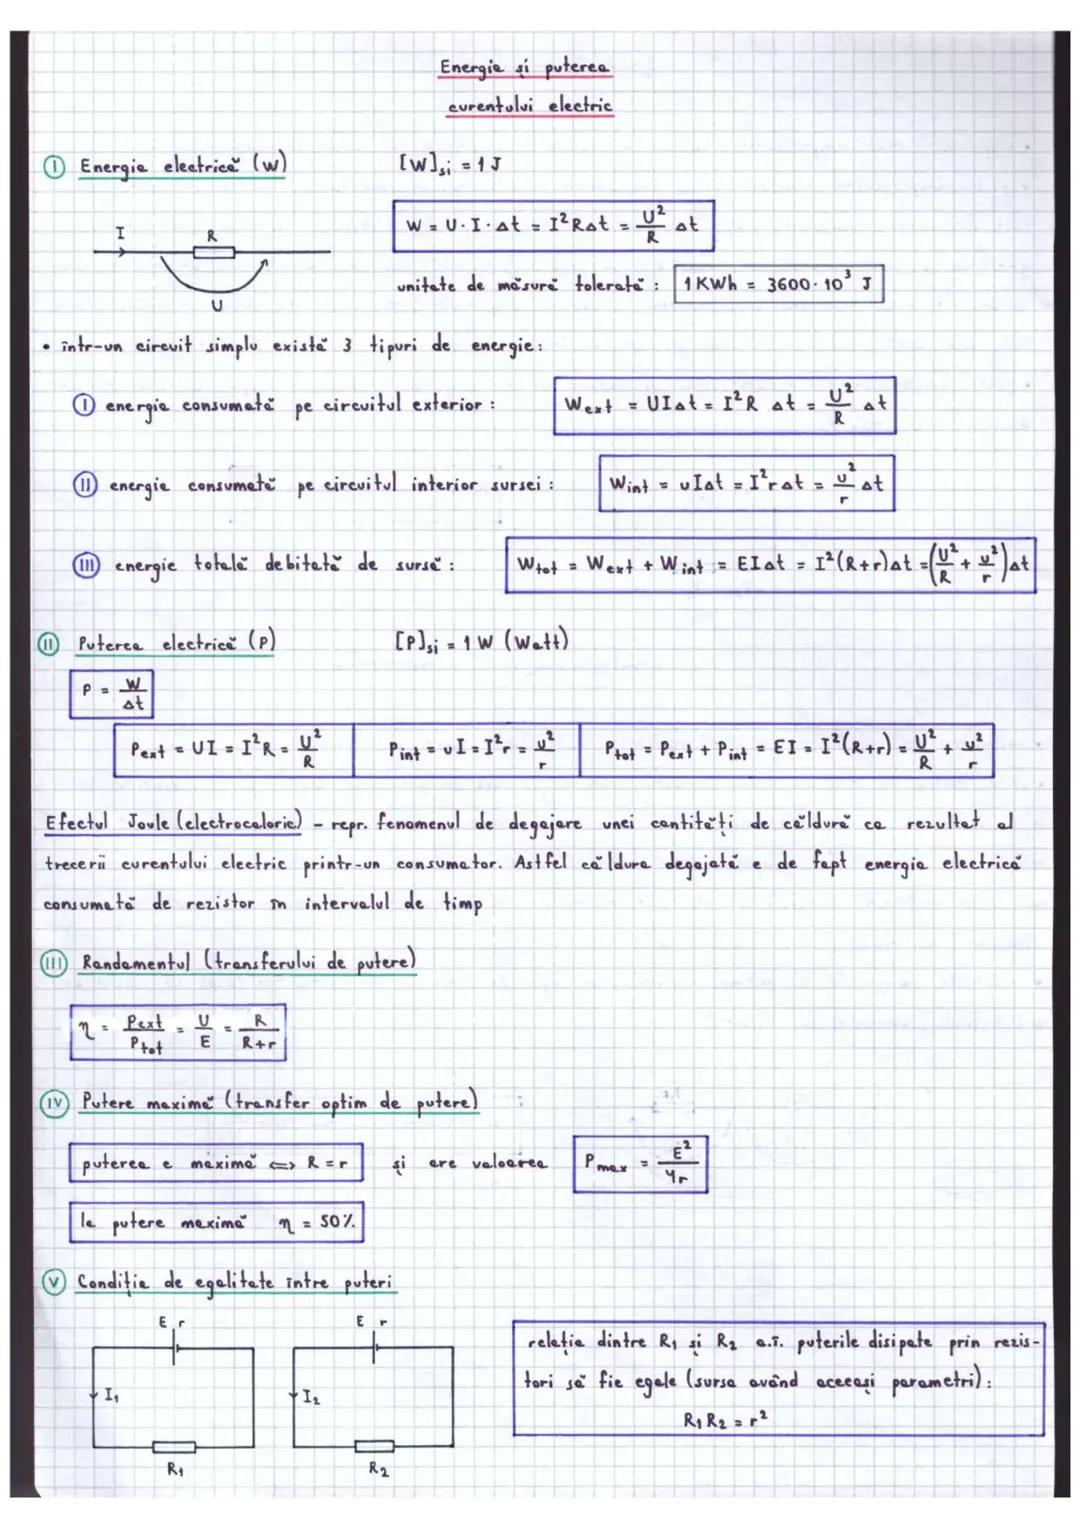 Energia și puterea
curentului electric
I Energia electrică (W) [W]si = 1 J
I R U
W = U·I·Δt = I²RΔt = U²/R Δt
unitate de măsură tolerată : 1 KWh = 3600·10³ J
• într-un circuit simplu există 3 tipuri de energie:
I energia consumată pe circuitul exterior : Wext = UIΔt = I²R Δt = U²/R Δt
II energia consumată pe circuitul interior sursei : Wint = uIΔt = I²rΔt = u²/r Δt
III energie totală debitată de sursă : Wtot = Wext + Wint = EIΔt = I²(R+r)Δt = (U²/R + u²/r)Δt
II Puterea electrică (P) [P]si = 1 W (Watt)
P = W/Δt
Pext = UI = I²R = U²/R Pint = uI = I²r = u²/r Ptot = Pext + Pint = EI = I²(R+r) = U²/R + u²/r
Efectul Joule (electrocaloric) - repr. fenomenul de degajare unei cantități de căldură ca rezultat al
trecerii curentului electric printr-un consumator. Astfel căldura degajată e de fapt energia electrică
consumată de rezistor în intervalul de timp
III Randamentul (transferului de putere)
η = Pext/Ptot = U/E = R/R+r
IV Putere maximă (transfer optim de putere)
puterea e maximă <=> R = r și are valoarea Pmax = E²/4r
la putere maximă η = 50%
V Condiția de egalitate între puteri
E r E r
relația dintre R₁ și R₂ a.î. puterile disipate prin rezis-
tori să fie egale (sursa având aceeași parametri):
I₁ I₂
R₁ R₂ = r²
R₁ R₂